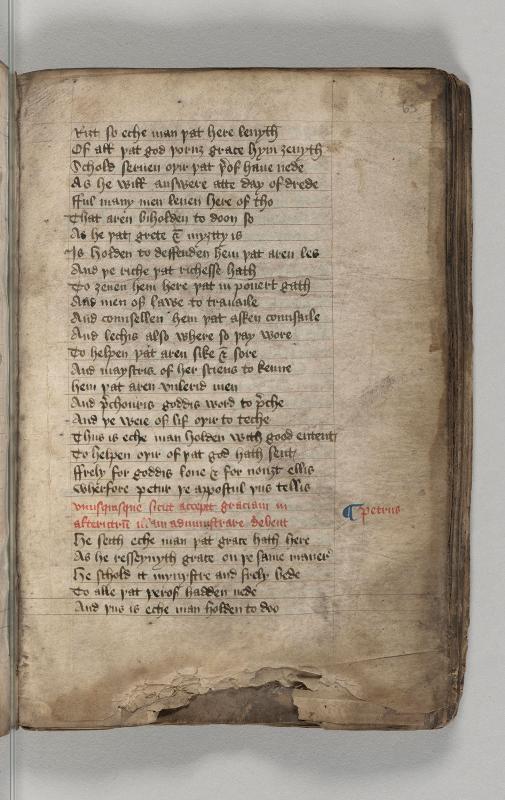 63
Riȝt so eche man þat here leuyth
Of all þat god þoruȝ grace hym ȝeuyth
Schold seruen oþir þat þ̉of haue nede
As he will answere atte day of drede
fful many men leuen here of tho
That aren biholden to doon so
As he þat grete & myȝtty is
Is holden to deffenden hem þat aren les
And þe riche þat richesse hath
To ȝeuen hem here þat in pouert gath
And men of lawe to trauaile
And counsellen hem þat asken counsaile
And lechis also where so þay wore
To helpen þat aren sike & sore
And maystris of her sciens to kenne
hem þat aren vnlerid men
And p̉chouris goddis word to p̉che
And þe weie of lif oþir to teche
Thus is eche man holden with good entent
To helpen oþir of þat god hath sent
ffrely for goddis loue & for nouȝt ellis
Wherfore petur þe appostul þus tellis
vnusquisque sicut accepit graciam in
alterutrū illam administrare debent
¶ petrus
He seith eche man þat grace hath here
As he resseyuyth grace on þe same maner̉
He schold it mynystre and frely bede
To alle þat þerof hadden nede
And þus is eche man holden to doo